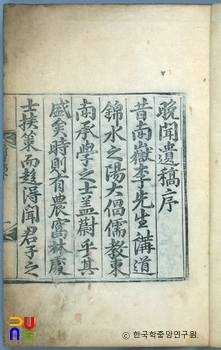 晩聞遺稿序
昔南嶽李先生講道
錦水之湯大倡儒敎東
南承學之士盖蔚乎其
盛矣時則有農窩林處
士挾策而趍得聞君子之
PUU
한국학중앙연구원